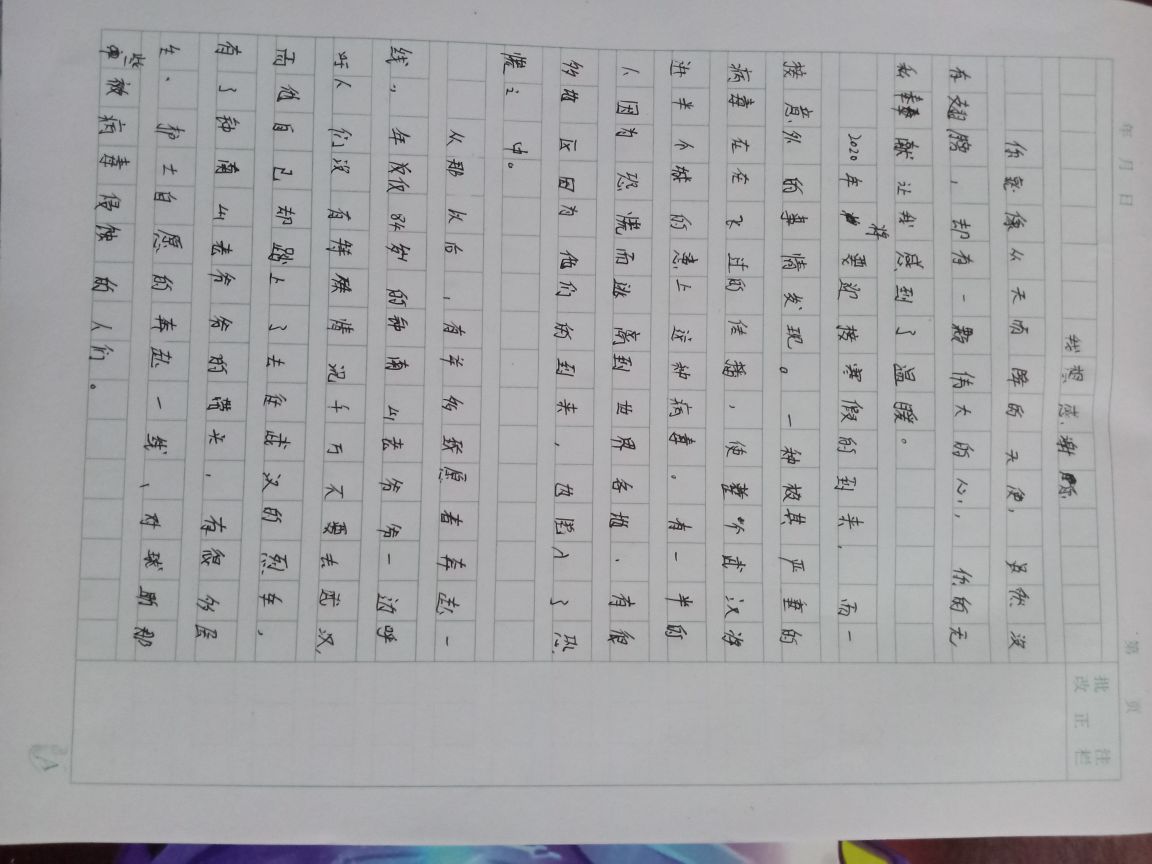 年 月 日
第 页
批注
改正栏
我想感谢
你就像从天而降的天使，虽然没
有翅膀，却有一颗伟大的心，你的无
私奉献让我感到了温暖。
2020年将要迎接寒假的到来，而一
接意外的事情发现。一种极其严重的
病毒在在飞过的传播，使整个武汉将
进半个城的患上这种病毒。有一半的
人因为恐慌而逃离到世界各地、有很
多地区因为他们的到来，也陷入了恐
慌之中。
从那以后，有许多致愿者奔赴一
线，年茂仅84岁的钟南山去爷爷一边呼
吁人们没有特殊情况千万不要去武汉，
而他自已却踏上了去往武汉的烈车，
有了钟南山老爷爷的带头，有很多医
生、护士自愿的奔赴一线、对球助那
些被病毒侵蚀的人们。